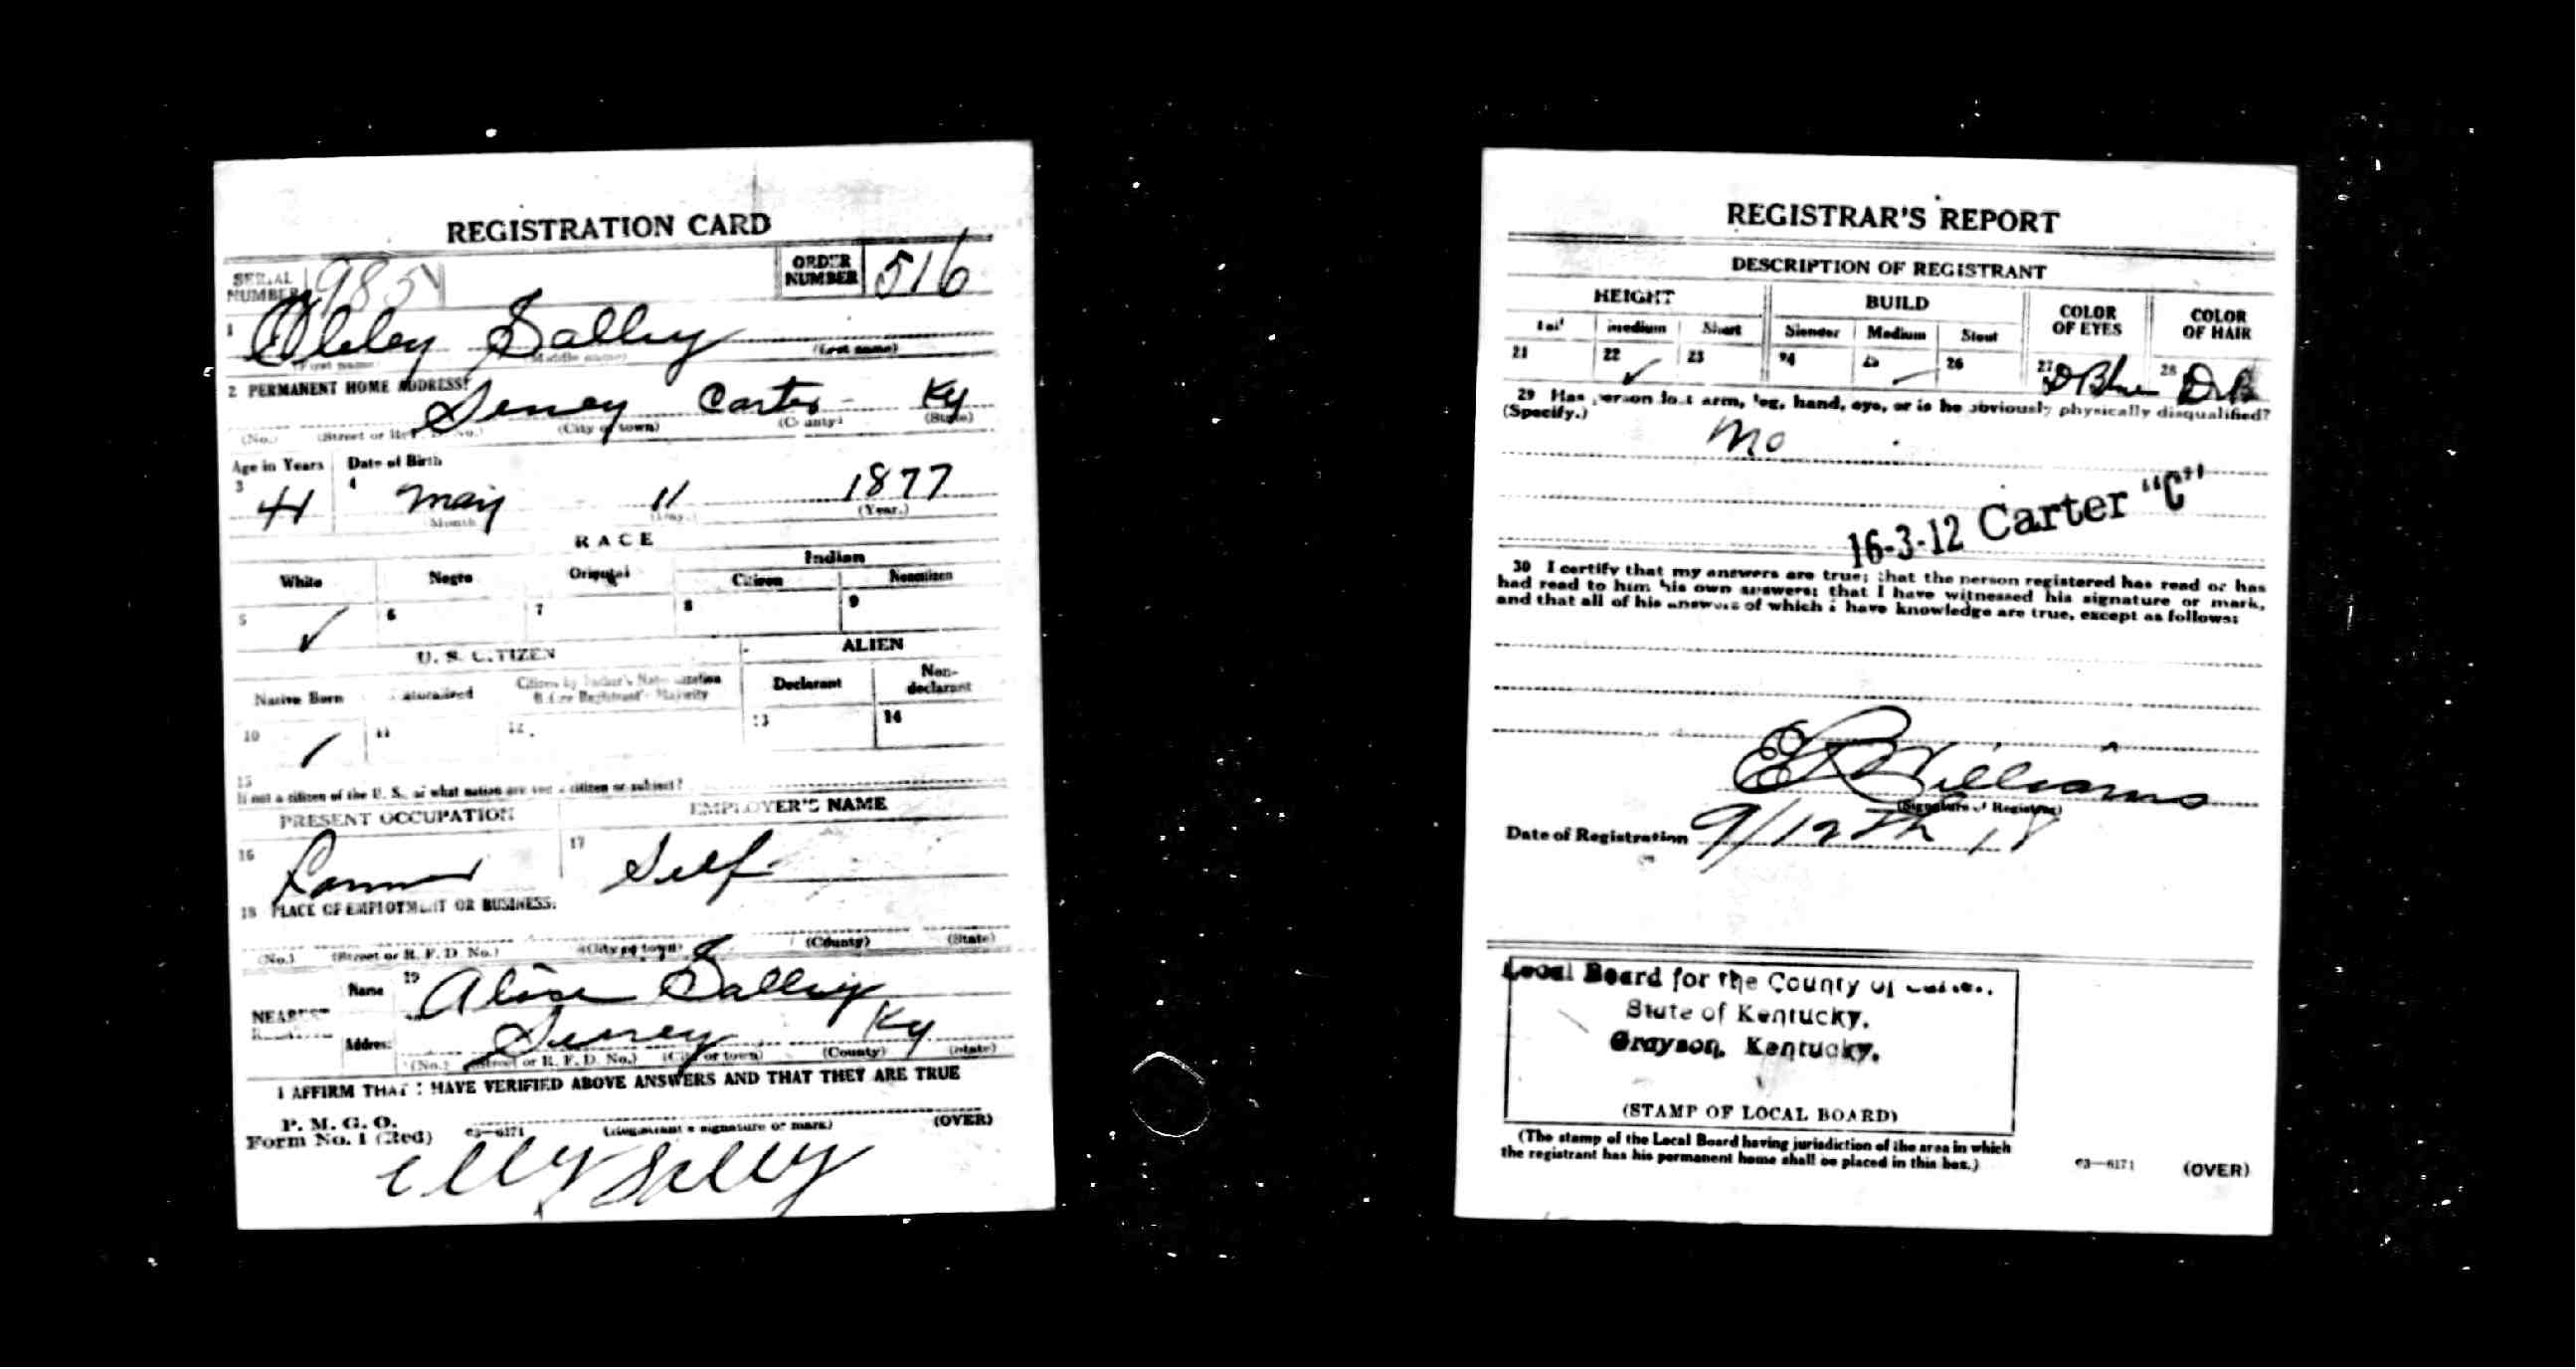 REGISTRATION CARD
SERIAL NUMBER 985 ORDER NUMBER 516
1 Salley
(First name) (Middle name) (Last name)
2 PERMANENT HOME ADDRESS:
Carter Ky
(No.) (Street or R. F. D. No.) (City or town) (County) (State)
Age in Years Date of Birth
3 41 4 May 11 1877
Month (Day.) (Year.)
RACE
White Negro Oriental Indian
Citizen Noncitizen
5 ✓ 6 7 8 9
U. S. CITIZEN ALIEN
Native Born Naturalized Citizen by Father's Naturalization Before Registrant's Majority Declarant Non-declarant
10 ✓ 11 12 13 14
15
If not a citizen of the U. S., of what nation are you a citizen or subject?
PRESENT OCCUPATION EMPLOYER'S NAME
16 Farmer 17 Self
18 PLACE OF EMPLOYMENT OR BUSINESS:
(No.) (Street or R. F. D. No.) (City or town) (County) (State)
NEAREST RELATIVE Name 19 Salley
Address Ky
(No.) (Street or R. F. D. No.) (City or town) (County) (State)
I AFFIRM THAT I HAVE VERIFIED ABOVE ANSWERS AND THAT THEY ARE TRUE
P. M. G. O.
Form No. 1 (Red) 03—6171 (Registrant's signature or mark) (OVER)
REGISTRAR'S REPORT
DESCRIPTION OF REGISTRANT
HEIGHT BUILD COLOR OF EYES COLOR OF HAIR
Tall Medium Short Slender Medium Stout
21 22 ✓ 23 24 25 26 27 D Blue 28 DrB
29 Has person lost arm, leg, hand, eye, or is he obviously physically disqualified?
(Specify.)
No
16-3-12 Carter "C"
30 I certify that my answers are true; that the person registered has read or has
had read to him his own answers; that I have witnessed his signature or mark,
and that all of his answers of which I have knowledge are true, except as follows:
Williams
(Signature of Registrar)
Date of Registration 9/12th 18
Local Board for the County of Carter,
State of Kentucky,
Grayson, Kentucky.
(STAMP OF LOCAL BOARD)
(The stamp of the Local Board having jurisdiction of the area in which
the registrant has his permanent home shall be placed in this box.)
03—6171 (OVER)